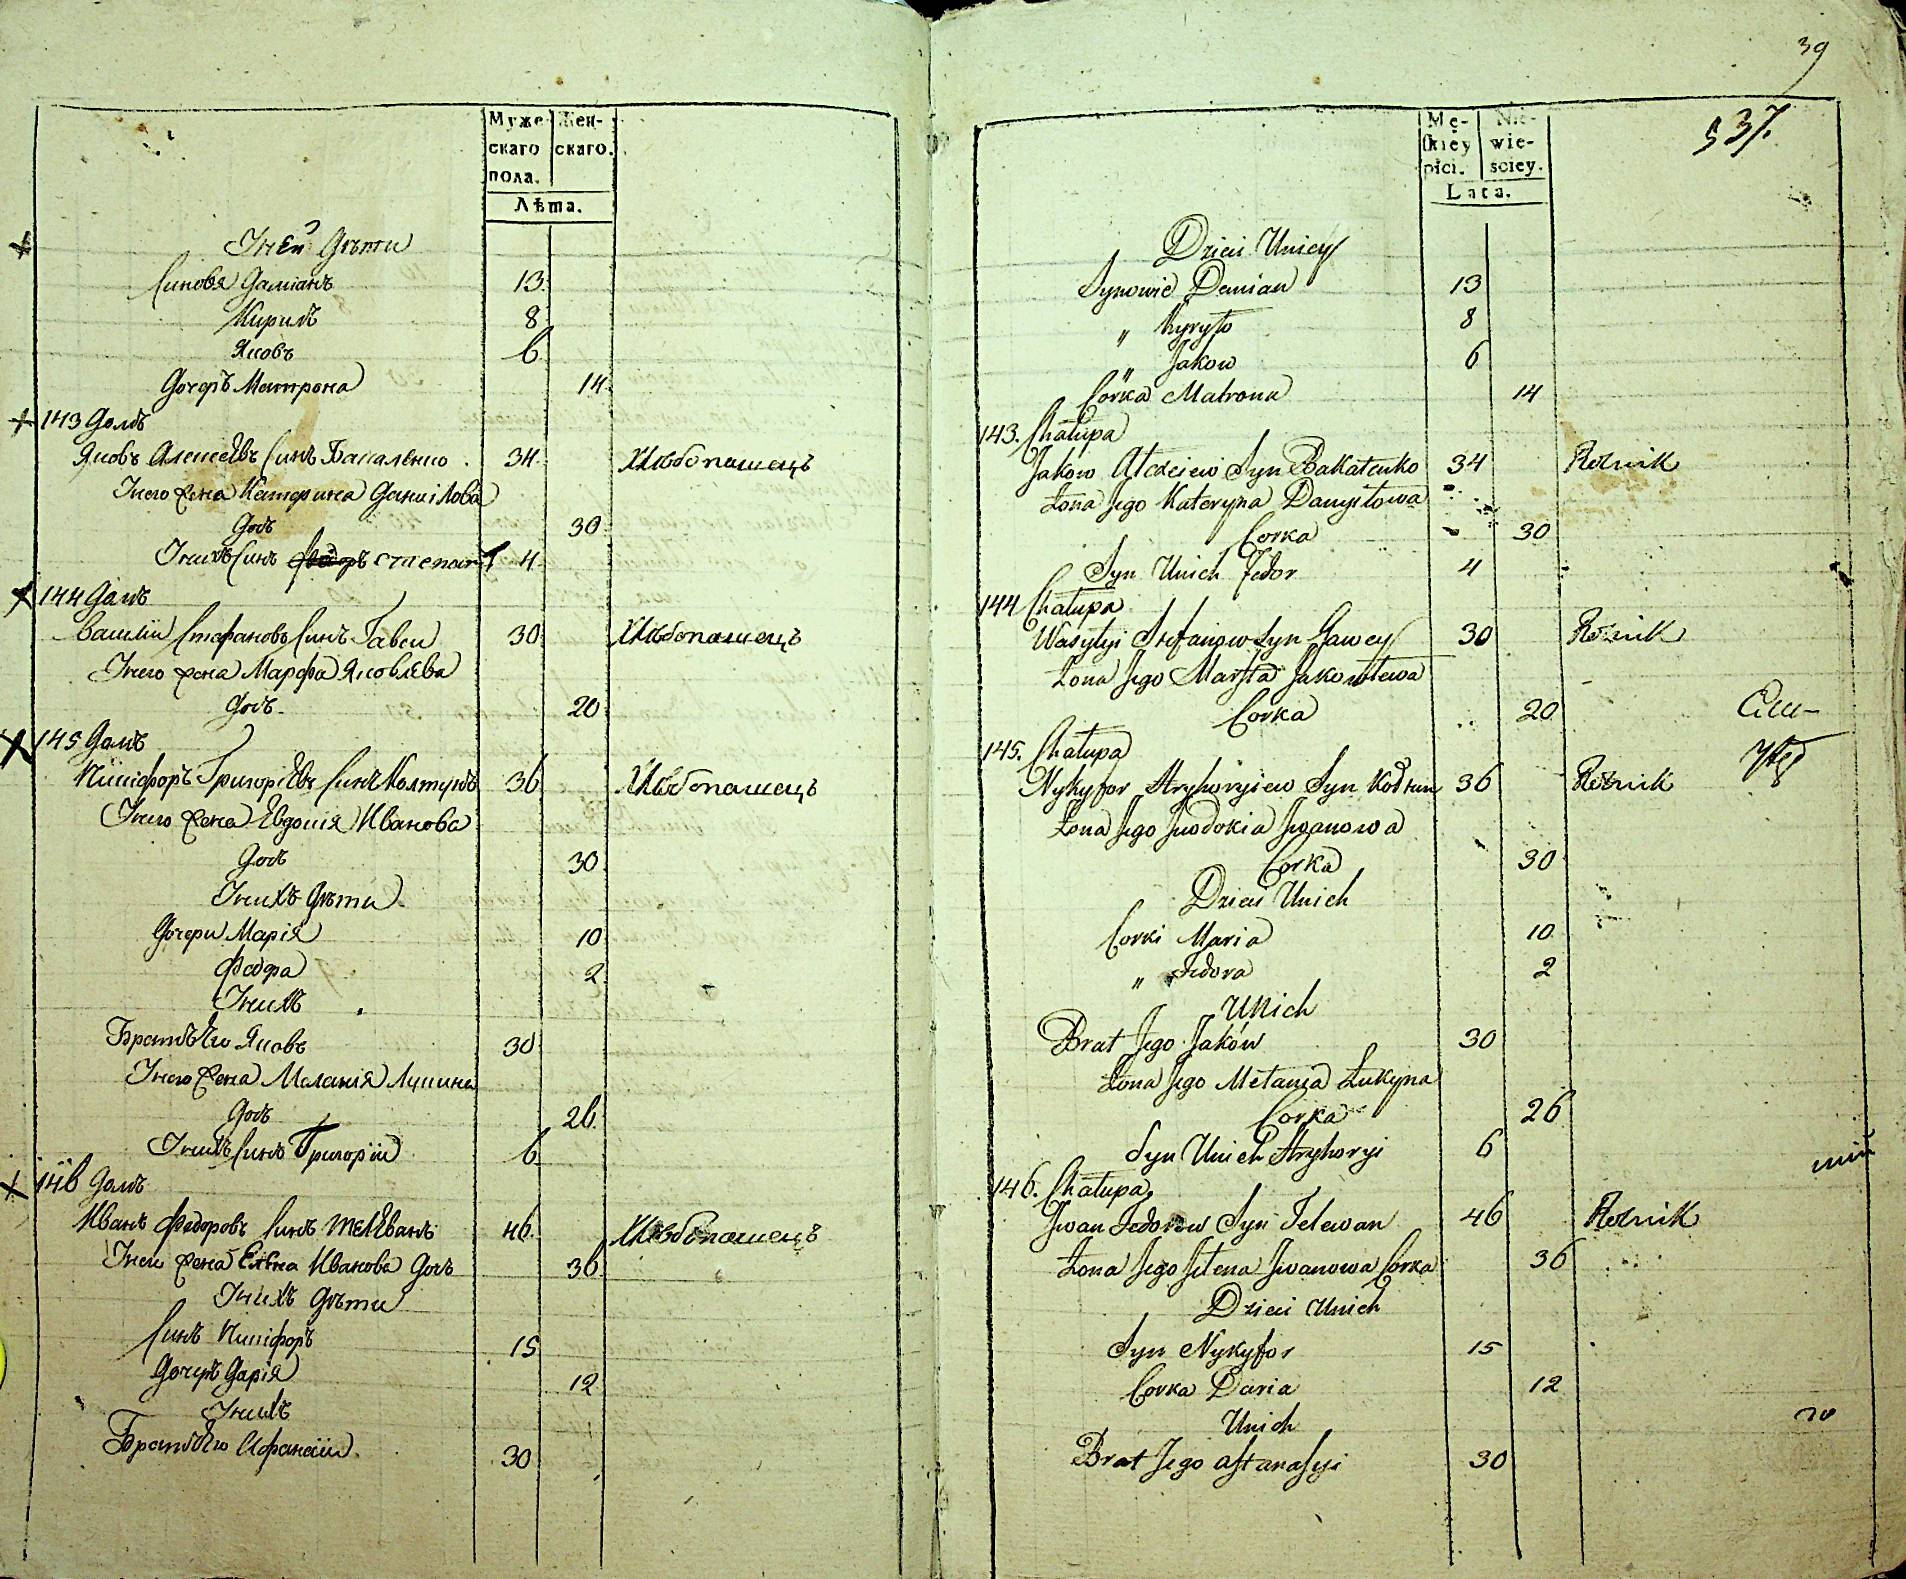 Муже-
скаго
пола.
Жен-
скаго.
Лѣта.
У ней Дѣти
Синовя Даміанъ 13
Кирилъ 8
Яковъ 6
Дочерь Матрона 14
143 Домъ
Яковъ Алексѣевъ Синъ Бакаленко 34 Хлѣбопашецъ
У него жена Катерина Данилова
Дочь 30
У нихъ Синъ Федоръ степан 4
144 Домъ
Василіи Стефановъ Синъ Гавеи 30 Хлѣбопашецъ
У него жена Марфа Яковлева
Дочь 20
145 Домъ
Никифоръ Григоріевъ Синъ Колтунъ 36 Хлѣбопашецъ
У него жена Евдокія Иванова
Дочь 30
У нихъ Дѣти
Дочери Марія 10
Федора 2
У нихъ
Братъ Его Яковъ 30
У него жена Меланія Лукина
Дочь 26
У нихъ Синъ Григоріи 6
146 Домъ
Иванъ Федоровъ Синъ Телеванъ 46 Хлѣбопашецъ
У него жена Елена Иванова Дочь 36
У нихъ Дѣти
Синъ Никифоръ 15
Дочерь Дарія 12
У нихъ
Братъ Его Афанасіи 30
39
537.
Mę-
skiey
płci.
Nie-
wie-
sciey.
Lata.
Dzieci Uniey
Synowie Demian 13
" Kyryło 8
" Jakow 6
Corka Matrona 14
143. Chałupa
Jakow Alexieiew Syn Bakałenko 34 Rolnik
Żona Jego Kateryna Danyłowa
Corka 30
Syn Unich Fedor 4
144 Chałupa
Wasylyi Stefanow Syn Gawey 30 Rolnik
Żona Jego Marfta Jakowlewa
Corka 20
145. Chałupa
Nykyfor Hryhoryiew Syn Kołtun 36 Rolnik
Żona Jego Jwdokia Jwanowa
Corka 30
Dzieci Unich
Corki Maria 10
" Fedora 2
Unich
Brat Jego Jaków 30
Żona Jego Mełania Łukyna
Corka 26
Syn Unich Hryhoryi 6
146. Chałupa
Jwan Fedorow Syn Telewan 46 Rolnik
Żona Jego Jełena Jwanowa Corka 36
Dzieci Unich
Syn Nykyfor 15
Corka Daria 12
Unich
Brat Jego Aftanasyi 30